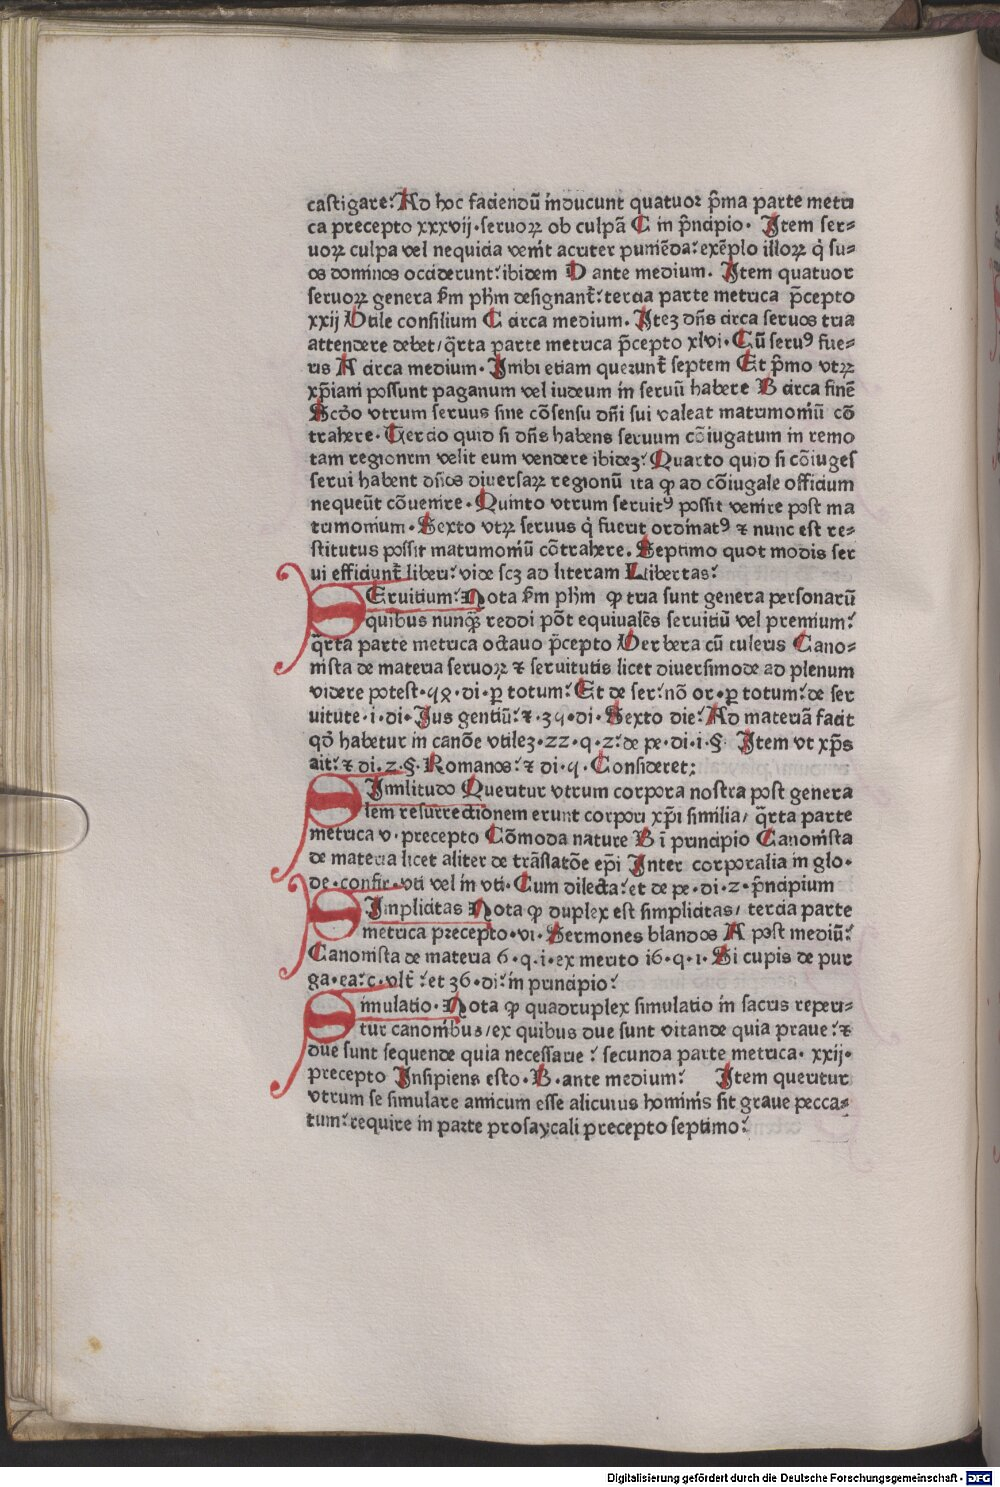 castigare: Ad hoc faciendū inducunt quatuor p̄ma parte metri
ca precepto xxxvij·seruoꝝ ob culpā C in p̄ncipio· Item ser⸗
uoꝝ culpa vel nequicia venit acriter puniēda: exēplo illoꝝ q̇ su⸗
os dominos occiderunt: ibidem D ante medium. Item quatuor
seruoꝝ genera ẜm pħm designant᷑: tercia parte metrica p̄cepto
xxij Vtile consilium C circa medium. Itez dn̄s circa seruos tria
attendere debet/ q̄rta parte metrica p̄cepto xlvi· Cū seruꝰ fue⸗
ris A circa medium· Inibi etiam querunt᷑ septem Et p̄mo vtꝝ
xp̄iani possunt paganum vel iudeum in seruū habere B circa finē
Scd̄o vtrum seruus sine cōsensu dn̄i sui valeat matrimoniū cō
trahere· Tercio quid si dn̄s habens seruum cōiugatum in remo
tam regionem velit eum vendere ibidez: Quarto quid si cōiuges
serui habent dn̄os diuersaꝝ regionū ita ꝙ ad cōiugale officium
nequeūt cōuenire· Quinto vtrum seruitꝰ possit venire post ma
trimonium· Sexto vtꝝ seruus q̇ fuerit ordinatꝰ ⁊ nunc est re⸗
stitutus possit matrimoniū cōtrahere. Septimo quot modis ser
ui efficiunt᷑ liberi: vide scz ad literam Llibertas:
SEruitium: Nota ẜm pħm ꝙ tria sunt genera personarū
quibus nunqꝫ reddi pōt equiualēs seruitiū vel premium:
q̄rta parte metrica octauo p̄cepto Verbera cū tuleris Cano⸗
nista de materia seruoꝝ ⁊ seruitutis licet diuersimode ad plenum
videre potest·98·di·ꝑ totum: Et de ser: nō or·ꝑ totum: de ser
uitute·i·di·Ius gentiū: ⁊·39·di·Sexto die: Ad materiā facit
qd̄ habetur in canōe vtilez·22·q·2: de pe·di·i·§· Item vt xp̄s
ait: ⁊ di.2·§· Romanos: ⁊ di·9·Consideret:
SImilitudo Queritur vtrum corpora nostra post genera
lem resurrectionem erunt corpori xp̄i similia/ q̄rta parte
metrica v·precepto Cōmoda nature B ī principio Canonista
de materia licet aliter de trāslatōe ep̄i Inter corporalia in glo·
de·confir·vti vel in vti·Cum dilecta: et de pe·di·2·p̄ncipium
SImplicitas Nota ꝙ duplex est simplicitas/ tercia parte
metrica precepto·vi·Sermones blandos A post mediū:
Canonista de materia 6·q·i·ex merito 16·q·1·Si cupis de pur
ga·ea:c·vlt᷑: et 36·di: in principio:
SImulatio·Nota ꝙ quadruplex simulatio in sacris reperi⸗
tur canonibus/ex quibus due sunt vitande quia praue: ⁊
due sunt sequende quia necessarie: secunda parte metrica·xxij·
precepto Insipiens esto·B·ante medium: Item queritur
vtrum se simulare amicum esse alicuius hominis sit graue pecca⸗
tum: require in parte prosaycali precepto septimo:
Digitalisierung gefördert durch die Deutsche Forschungsgemeinschaft - DFG